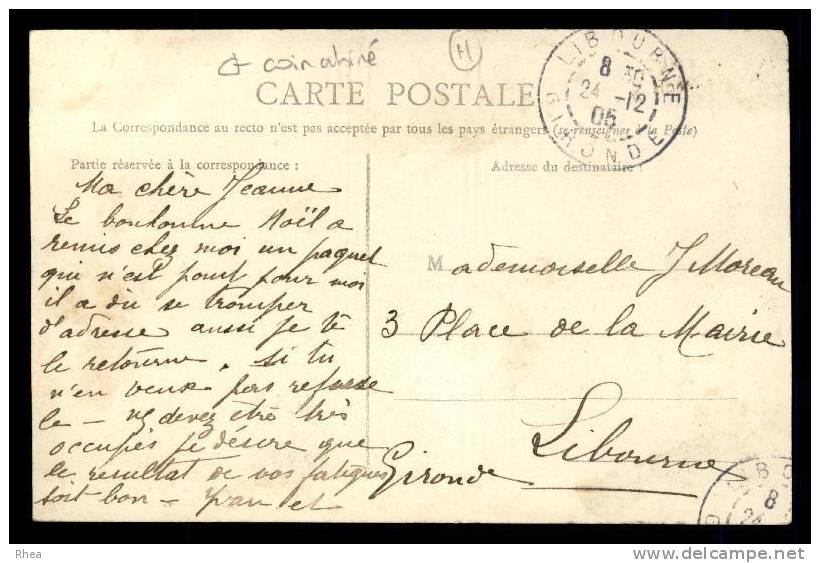 + coin abimé
H
CARTE POSTALE
La Correspondance au recto n'est pas acceptée par tous les pays étrangers (se renseigner à la Poste)
Partie réservée à la correspondance :
Ma chère Jeanne
Le bonhomme Noël a
remis chez moi un paquet
qui n'est point pour moi
il a du se tromper
d'adresse aussi je te
le retourne. si tu
n'en veux pas refuse
le — vs devez être très
occupés je désire que
le resultat de vos fatigues
soit bon —
Adresse du destinataire :
Mademoiselle J Moreau
3 Place de la Mairie
Libourne
Gironde
LIBOURNE
8 30
24 -12
05
GIRONDE
LIBO
8
24
Rhea
delcampe.net